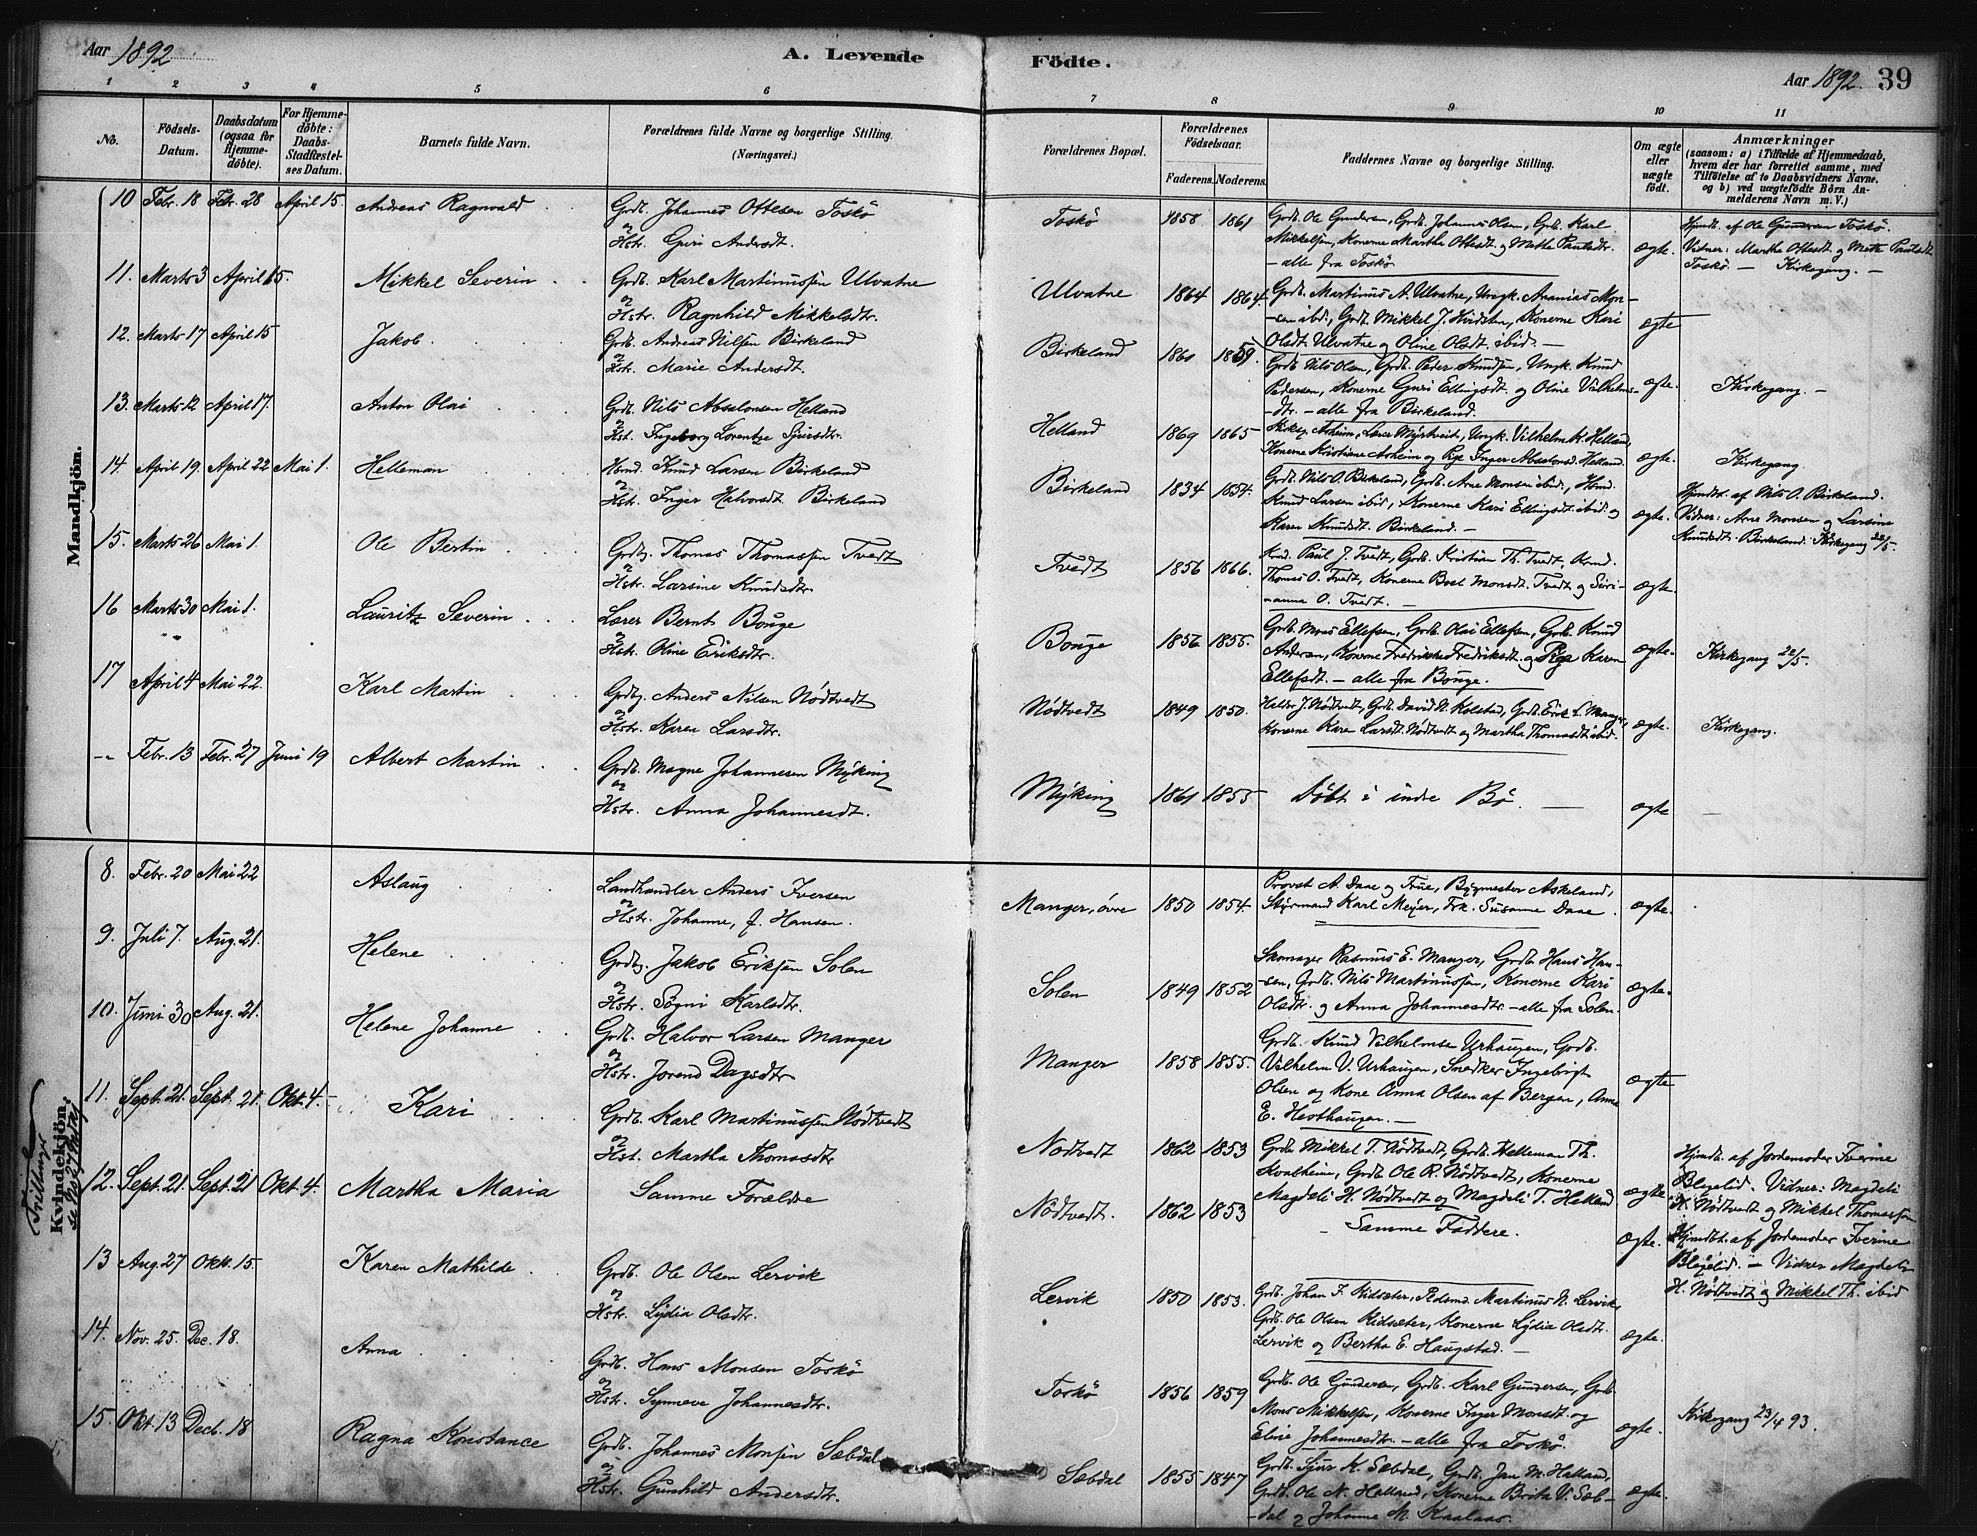 Aar 1892
A. Levende
Födte.
Aar 1892. 39
1 2 3 4 5 6 7 8 9 10 11
No.
Födsels-Datum.
Daabsdatum (ogsaa for Hjemmedöbte).
For Hjemmedöbte: Daabs-Stadfæstelses Datum.
Barnets fulde Navn.
Forældrenes fulde Navne og borgerlige Stilling. (Næringsvei.)
Forældrenes Bopæl.
Forældrenes Födselsaar.
Faderens. Moderens.
Faddernes Navne og borgerlige Stilling.
Om ægte eller uægte födt.
Anmærkninger
(saasom: a) i Tilfælde af Hjemmedaab, hvem der har forrettet samme, med Tilföielse af to Daabsvidners Navne, og b) ved uægtefödte Börn Anmelderens Navn m. V.)
Mandkjön.
10 Febr. 18 Febr. 28 April 15. Andreas Ragnvald
Grdb. Johannes Ottesen Toskö
og Hstr. Guri Andersdt.
Toskö 1858 1861
Grdb. Ole Gundersen, Grdb. Johannes Olsen, Grdb. Karl
Mikkelsen, Konerne Martha Olsdt. og Mette Paulsdt.
– alle fra Toskö.
ægte.
Hjmdt. af Ole Gundersen Toskö.
Vidner: Martha Olsdt. og Mette Paulsdt.
Toskö. – Kirkegang. –
11. Marts 3 April 15. Mikkel Severin
Grdb. Karl Martinussen Ulvatne
og Hstr. Ragnhild Mikkelsdtr.
Ulvatne 1864 1864
Grdb. Martinus A. Ulvatne, Ungk. Ananias Mon-
-sen ibd., Grdb. Mikkel J. Hvidsten, Konerne Kari
Olsdt. Ulvatne og Oline Olsdt. ibid. –
ægte
12. Marts 17 April 15 Jakob
Grdb. Andreas Nilsen Birkeland
og Hst. Marie Andersdt.
Birkeland 1860 1859.
Grdb. Nils Olsen, Grdb. Peder Knudsen, Ungk. Knud
Pedersen, Konerne Guri Ellingsdt. og Oline Vilhelms-
-dtr. – alle fra Birkeland.
ægte.
Kirkegang. –
13. Marts 12 April 17. Anton Olai
Grdb. Nils Absalonsen Helland
og Hst. Ingeborg Lorentze Sjursdtr.
Helland 1869 1865
Kirkesg. Asheim, Lærer Myrtveit, Ungk. Vilhelm K. Helland,
Konerne Kristiane Asheim og Pge Inger Absalonsd. Helland.
ægte.
Kirkegang.
14. April 19 April 22 Mai 1. Helleman
Hsmd. Knud Larsen Birkeland
og Hst. Inger Halvorsdt. Birkeland
Birkeland 1834 1854.
Grdb. Nils O. Birkeland, Grdb. Arne Monsen ibid., Hsmd.
Knud Larsen ibid., Konerne Kari Ellingsdt. ibid. og
Karen Knudsdt. Birkeland. –
ægte.
Hjmdt. af Nils O. Birkeland.
Vidner: Arne Monsen og Larsine
Knudsdt. Birkeland. Kirkegang 22/5.
15. Marts 26 Mai 1. Ole Bertin
Grdbg. Thomas Thomassen Tvedt
og Hstr. Larsine Knudsdtr.
Tvedt 1856 1866.
Paul J. Tvedt, Grdb. Kristian Th. Tvedt,
Thomas O. Tvedt, Konerne Boel Monsdt. Tvedt og Seri-
-anna O. Tvedt. –
ægte.
16 Marts 30 Mai 1. Lauritz Severin
Lærer Bernt Bouge
og Hstr. Oline Eriksdtr.
Bouge 1856 1855.
Grdb. Mons Ellefsen, Grdb. Olai Ellefsen, Grdb. Knud
Andersen, Konerne Fredrikke Fredriksdt. og Pge Karen
Ellefsdt. – alle fra Bouge.
ægte.
Kirkegang 22/5.
17 April 4 Mai 22. Karl Martin
Grdbg. Anders Nilsen Nödtvedt
og Hstr. Karen Larsdtr.
Nödtvedt 1849 1850.
J. Nödtvedt, Grdb. David N. Kolstad, Grdb. Erik L. Manger,
Konerne Karen Larsdt. Nödtvedt og Martha Thomasdt. ibid.
ægte.
Kirkegang.
-"- Febr. 13 Febr. 27 Juni 19 Albert Martin
Grdb. Magne Johannesen Mÿking
og Hstr. Anna Johannesdt.
Mÿking 1861 1855
Döbt i indre Bö. –
ægte
Kvindekjön.
Tvillinger
8. Febr. 20 Mai 22 Aslaug
Landhandler Anders Iversen
og Hstr. Johanne, f. Hansen.
Manger, övre 1850 1854.
Provst A. Daae og Frue, Bygmester Askeland,
Styrmand Karl Meyer, Frk. Susanne Daae.
ægte.
9. Juli 7. Aug. 21. Helene
Grdbg. Jakob Eriksen Solen
og Hstr. Sögni Karlsdtr.
Solen 1849 1852
Skomager Rasmus E. Manger, Grdb. Hans Han-
sen, Grdb. Nils Martinussen, Konerne Kari
Olsdtr. og Anna Johannesdtr. – alle fra Solen.
ægte.
10. Juni 30 Aug. 21. Helene Johanne
Grdb. Halvor Larsen Manger
og Hstr. Jorend Dagsdtr
Manger 1858 1855.
Grdb. Knud Vilhelmsen Urhaugen, Grdb.
Vilhelm V. Urhaugen, Snedker Ingebrigt
Olsen og Kone Anna Olsen af Bergen, Anna
E. Hesthaugen. –
ægte
11. Sept. 21. Sept. 21. Okt. 4. Kari
Grdb. Karl Martinussen Nödtvedt
og Hst. Martha Thomasdtr
Nödtvedt 1862 1853
Grdb. Mikkel T. Nödtvedt, Grdb. Helleman Th.
Kvalheim, Grdb. Ole R. Nödtvedt, Konerne
Magdeli H. Nödtvedt og Magdeli T. Helland
ægte
Hjmdt. af Jordemoder Iverine
Blejelid. Vidner: Magdeli
H. Nödtvedt og Mikkel Thomassen
12. Sept. 21. Sept. 21 Okt. 4. Martha Maria
Samme Forældre
Nödtvedt. 1862 1853
– Samme Faddere.
ægte.
Hjmdbt. af Jordemoder Iverine
Blejelid. – Vidner Magdeli
H. Nödtvedt og Mikkel Th. ibid
13 Aug. 27 Okt. 15. Karen Mathilde
Grdb. Ole Olsen Lervik
og Hstr. Lydia Olsdtr.
Lervik 1850 1853.
Grdb. Johan F. Kidsæter, Martinus N. Lervik,
Grdb. Ole Olsen Kidsæter, Konerne Lydia Olsdtr.
Lervik og Bertha E. Haugstad. –
ægte.
14. Nov. 25. Dec. 18. Anna
Grdb. Hans Monsen Toskö
og Hstr. Synneve Johannesdtr.
Toskö 1856 1859
Grdb. Ole Gundersen, Grdb. Karl Gundersen, Grdb
Mons Mikkelsen, Konerne Inger Monsdt. og
Eline Johannesdtr. – alle fra Toskö.
ægte.
Kirkegang 23/4 93.
15. Okt. 13 Decb. 18 Ragna Konstance
Grdb. Johannes Monsen Sæbdal
og Hstr. Gunhild Andersdtr.
Sæbdal 1855 1847
Grdb. Sjur K. Sæbdal, Grdb. Jan M. Halland,
Grdb. Ole N. Halland, Konerne Brita V. Sæb-
-dal og Johanne M. Kaalaas.
ægte.